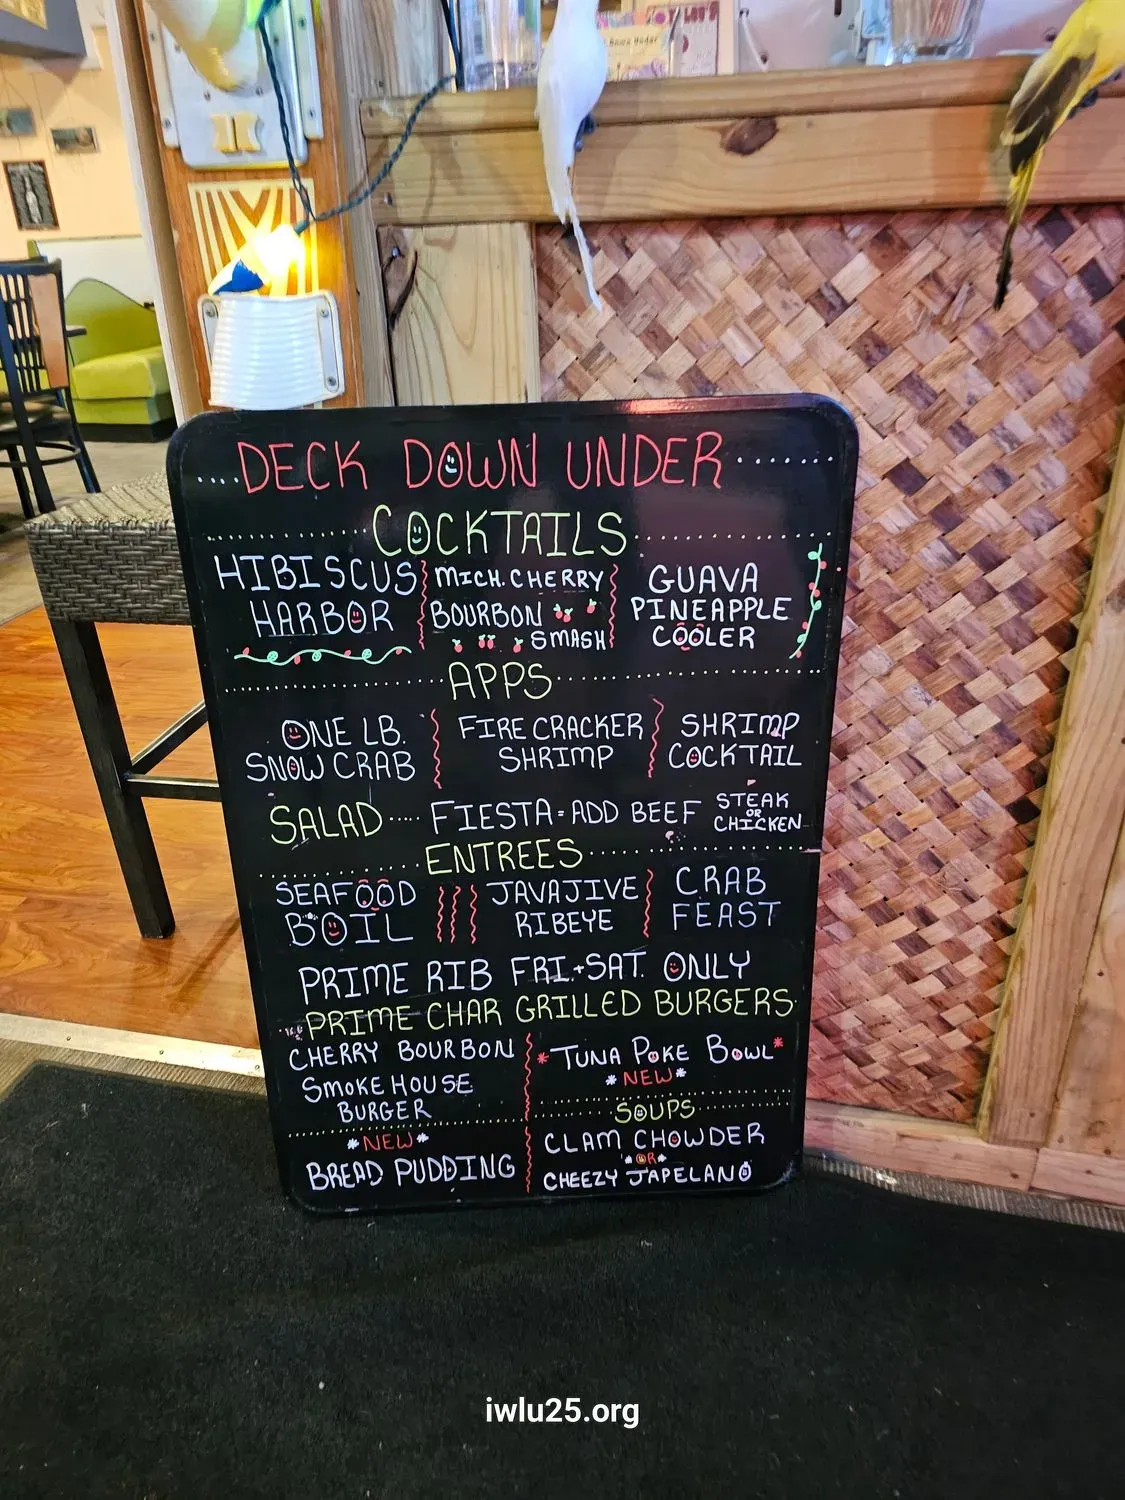 DECK DOWN UNDER
COCKTAILS
HIBISCUS
HARBOR
MICH. CHERRY
BOURBON
SMASH
GUAVA
PINEAPPLE
COOLER
APPS
ONE LB.
SNOW CRAB
FIRE CRACKER
SHRIMP
SHRIMP
COCKTAIL
SALAD
FIESTA = ADD BEEF
STEAK
OR
CHICKEN
ENTREES
SEAFOOD
BOIL
JAVAJIVE
RIBEYE
CRAB
FEAST
PRIME RIB FRI.+SAT. ONLY
PRIME CHAR GRILLED BURGERS
CHERRY BOURBON
SMOKE HOUSE
BURGER
*NEW*
BREAD PUDDING
*TUNA POKE BOWL*
*NEW*
SOUPS
CLAM CHOWDER
*OR*
CHEEZY JAPELANO
iwlu25.org